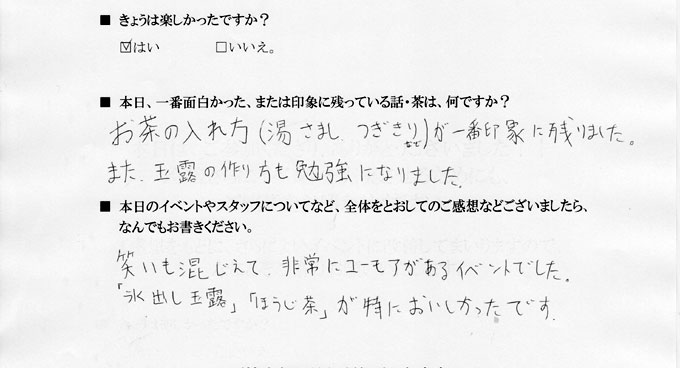 ■ きょうは楽しかったですか？
☑はい □いいえ。
■ 本日、一番面白かった、または印象に残っている話・茶は、何ですか？
お茶の入れ方(湯さまし、つぎきりなど)が一番印象に残りました。
また、玉露の作り方も勉強になりました。
■ 本日のイベントやスタッフについてなど、全体をとおしてのご感想などございましたら、
なんでもお書きください。
笑いも混じえて、非常にユーモアがあるイベントでした。
「氷出し玉露」「ほうじ茶」が特においしかったです。